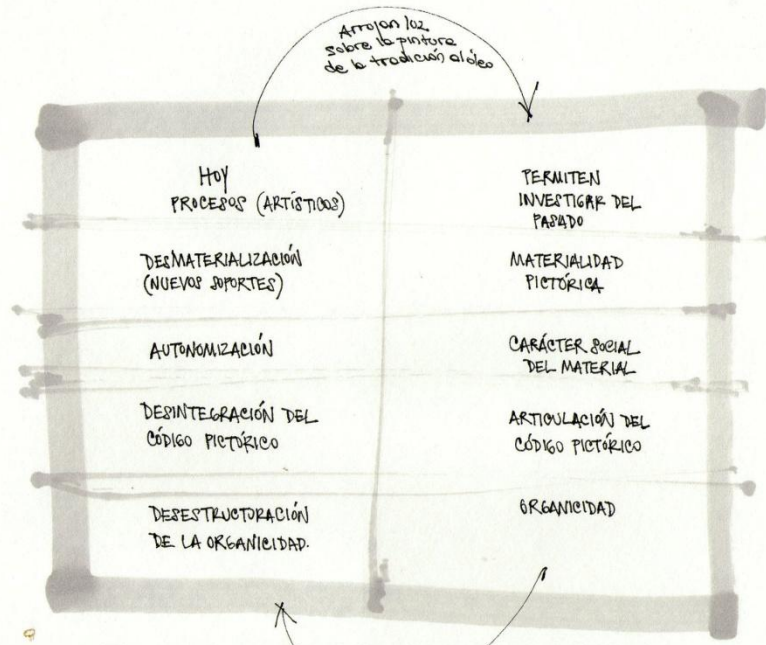 Arrojan luz
sobre la pintura
de la tradición al óleo
HOY
PROCESOS (ARTÍSTICOS)
PERMITEN
INVESTIGAR DEL
PASADO
DESMATERIALIZACIÓN
(NUEVOS SOPORTES)
MATERIALIDAD
PICTÓRICA
AUTONOMIZACIÓN
CARÁCTER SOCIAL
DEL MATERIAL
DESINTEGRACIÓN DEL
CÓDIGO PICTÓRICO
ARTICULACIÓN DEL
CÓDIGO PICTÓRICO
DESESTRUCTURACIÓN
DE LA ORGANICIDAD.
ORGANICIDAD